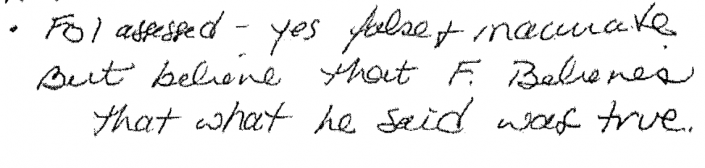 • FBI assessed - yes false & inaccurate
But believe that F. Believes
that what he said was true.